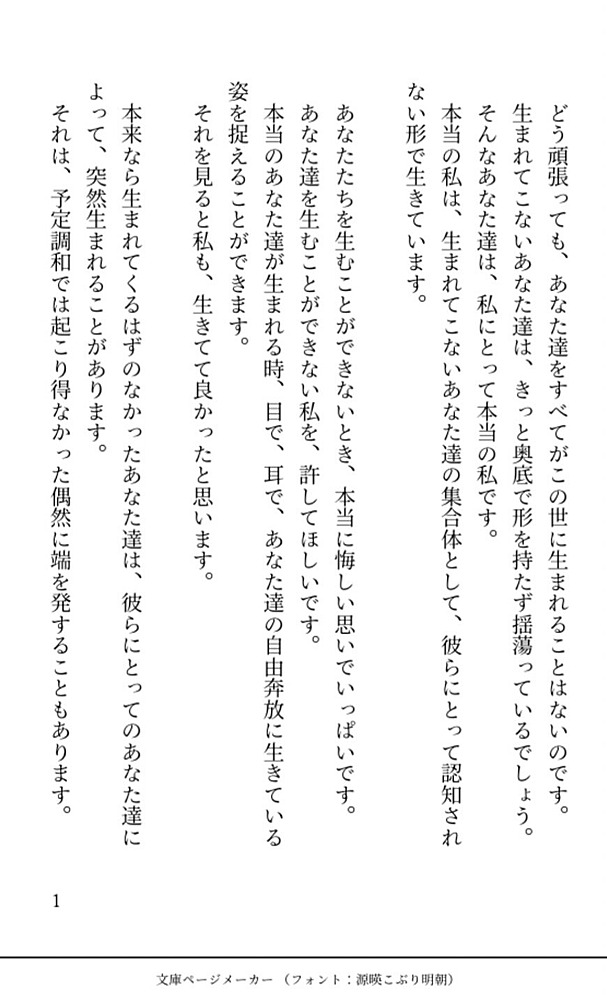 どう頑張っても、あなた達をすべてがこの世に生まれることはないのです。
生まれてこないあなた達は、きっと奥底で形を持たず揺蕩っているでしょう。
そんなあなた達は、私にとって本当の私です。
本当の私は、生まれてこないあなた達の集合体として、彼らにとって認知され
ない形で生きています。
あなたたちを生むことができないとき、本当に悔しい思いでいっぱいです。
あなた達を生むことができない私を、許してほしいです。
本当のあなた達が生まれる時、目で、耳で、あなた達の自由奔放に生きている
姿を捉えることができます。
それを見ると私も、生きてて良かったと思います。
本来なら生まれてくるはずのなかったあなた達は、彼らにとってのあなた達に
よって、突然生まれることがあります。
それは、予定調和では起こり得なかった偶然に端を発することもあります。
1
文庫ページメーカー（フォント：源暎こぶり明朝）